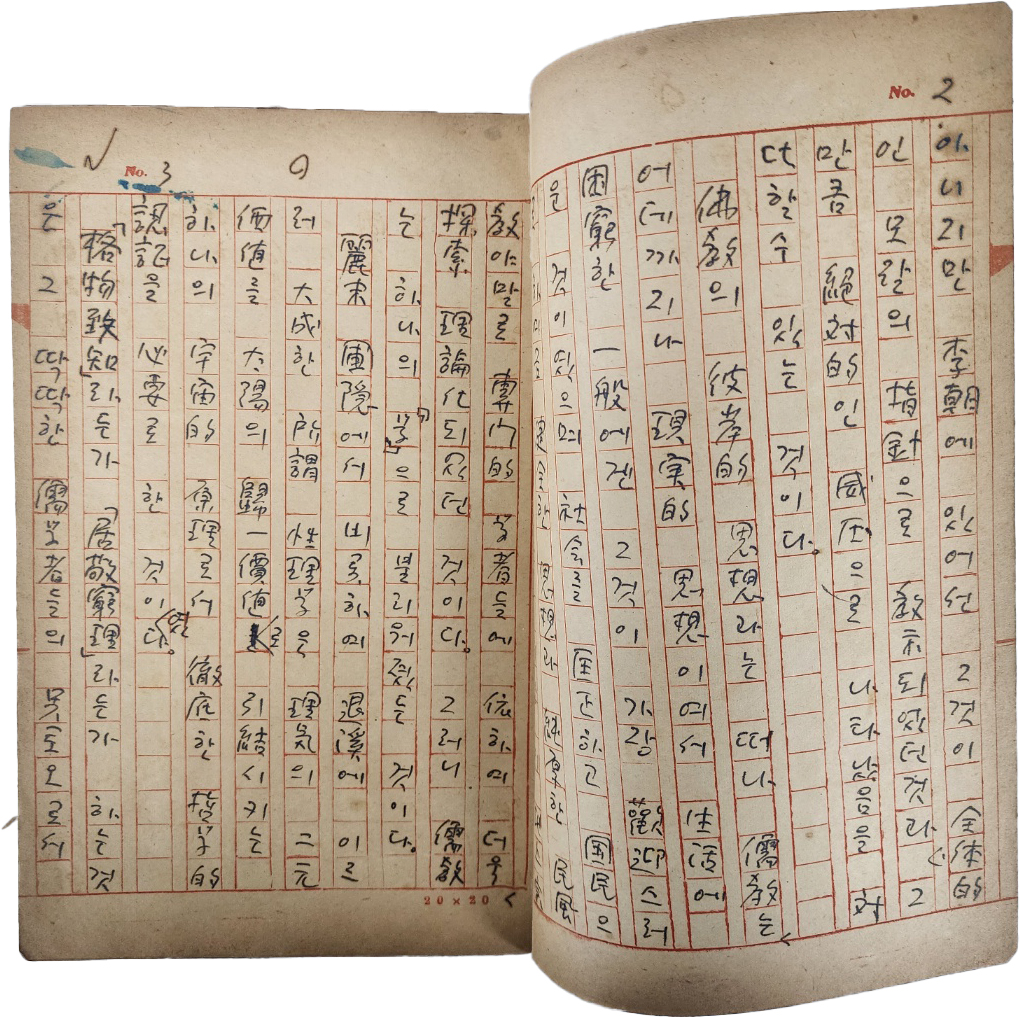 No. 2
아니리만 李朝에 있어선 그것이 全体的
인 모랄의 指針으로 教示되었던 것라 그
만큼 絕対的인 威压으로 나타났음을 対
대할수 있는 것이다.
佛教의 彼岸的 思想라는 떠나 儒教는
어데까지나 現実的 思想이여서 生活에
困窮한 一般에겐 그것이 가장 歡迎스러
운 것이었으며 社会를 匡正하고 国民으
民風
No. 3
教야말로 專门的 学者들에 依하여 더욱
探索 理論化되였던 것이다. 그러니 儒教
는 하나의 「学」으로 불리워졌는 것이다.
麗末 圃隱에서 비롯하여 退溪에 이르
러 大成한 所謂 性理学은 理気의 二元
価値를 太陽의 歸一價値로 引結시키는
하나의 宇宙的 原理로서 徹底한 哲学的
認証을 必要로 한 것이었다.
「格物致知」라는가 「居敬窮理」라는가 하는 것
은 그 딱딱한 儒学者들의 으로서
20×20